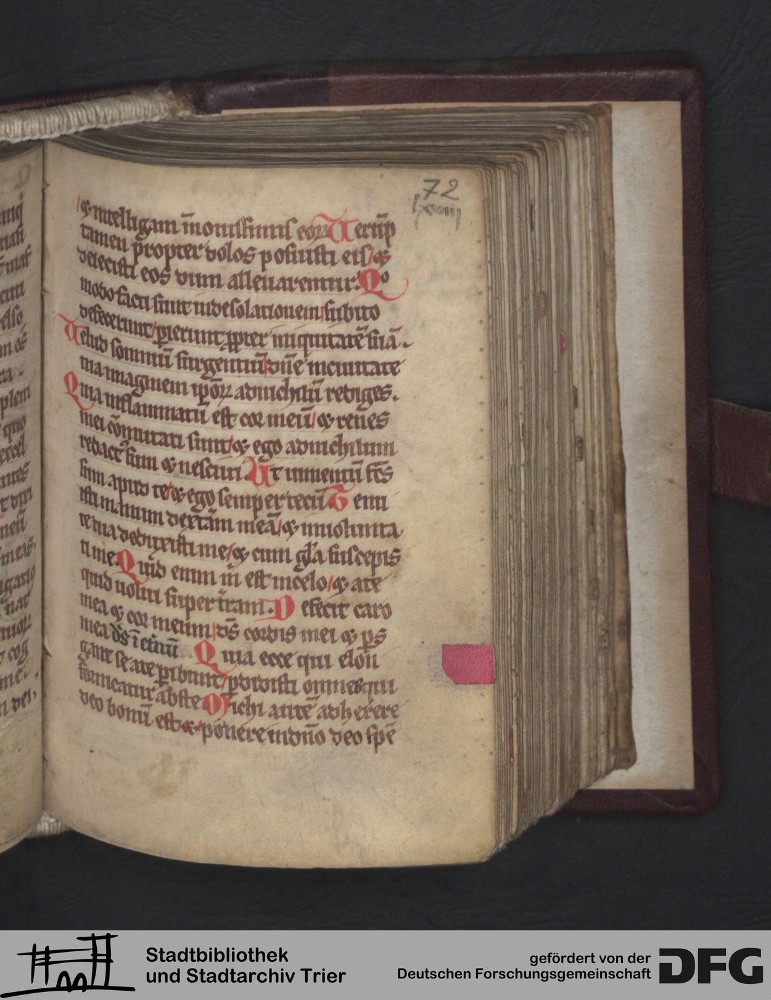 72
lxxiiij
⁊ intelligam ī nouissimis eoꝝ Uerūp
tamen ꝓpter dolos posuisti eis ⁊
deiecisti eos dum alleuarentur. Qo
modo facti sunt in desolationem subito
defecerunt perierunt ꝓpter iniquitatē suā.
Uelud somniū surgentiū dn̄e in ciuitate
tua imaginem ip̄oꝝ ad nichilū rediges.
Quia inflammatū est cor meū ⁊ renes
mei cōmutati sunt ⁊ ego ad nichilum
redact' sum ⁊ nesciui Ut iumentū fc̄s
sum aput te ⁊ ego semper tecū Tenu
isti manum dextām meā ⁊ in uolunta
te tua deduxisti me ⁊ cum gl̄a suscepis
ti me. Quid enim m̄ est in celo ⁊ a te
quid uolui super terram. Defecit caro
mea ⁊ cor meum ds̄ cordis mei ⁊ ps̄
mea ds̄ ī et̄nū Quia ecce qui elōn
gant se a te peribunt perdidisti omnes qui
fornicant' abs te Michi autē adherere
deo bonū est ⁊ ponere in dn̄o deo spē
Stadtbibliothek
und Stadtarchiv Trier
gefördert von der
Deutschen Forschungsgemeinschaft
DFG